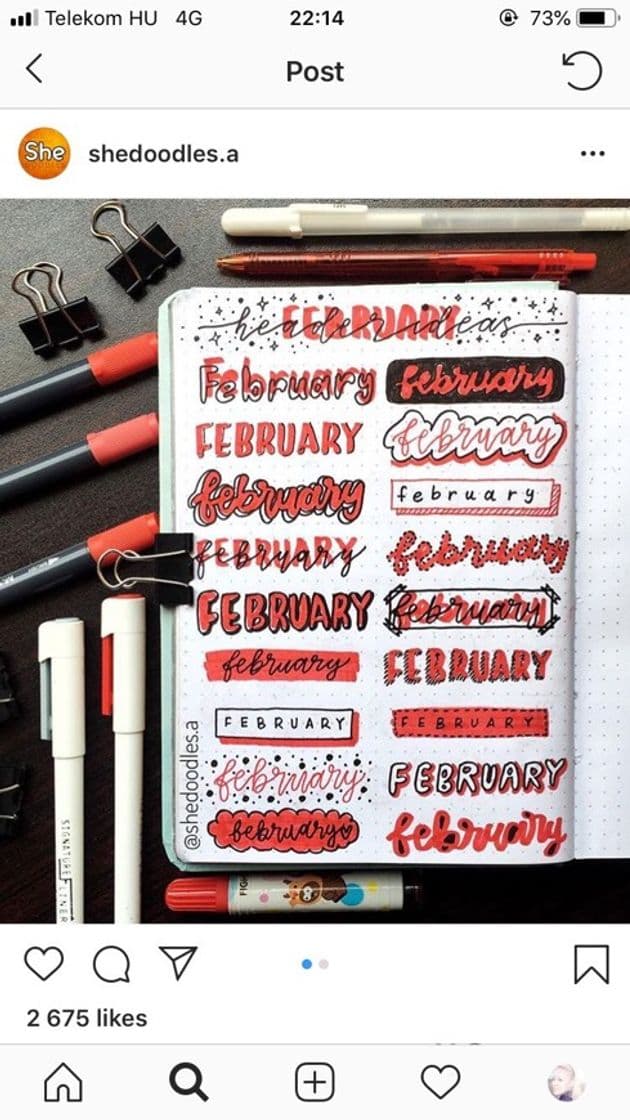 Telekom HU 4G 22:14 73%
Post
She shedoodles.a
FEBRUARY
header ideas
February february
FEBRUARY february
february february
FEBRUARY february february
FEBRUARY february
february FEBRUARY
FEBRUARY FEBRUARY
february FEBRUARY
february february
@shedoodles.a
SIGNATURE FLINER
2 675 likes